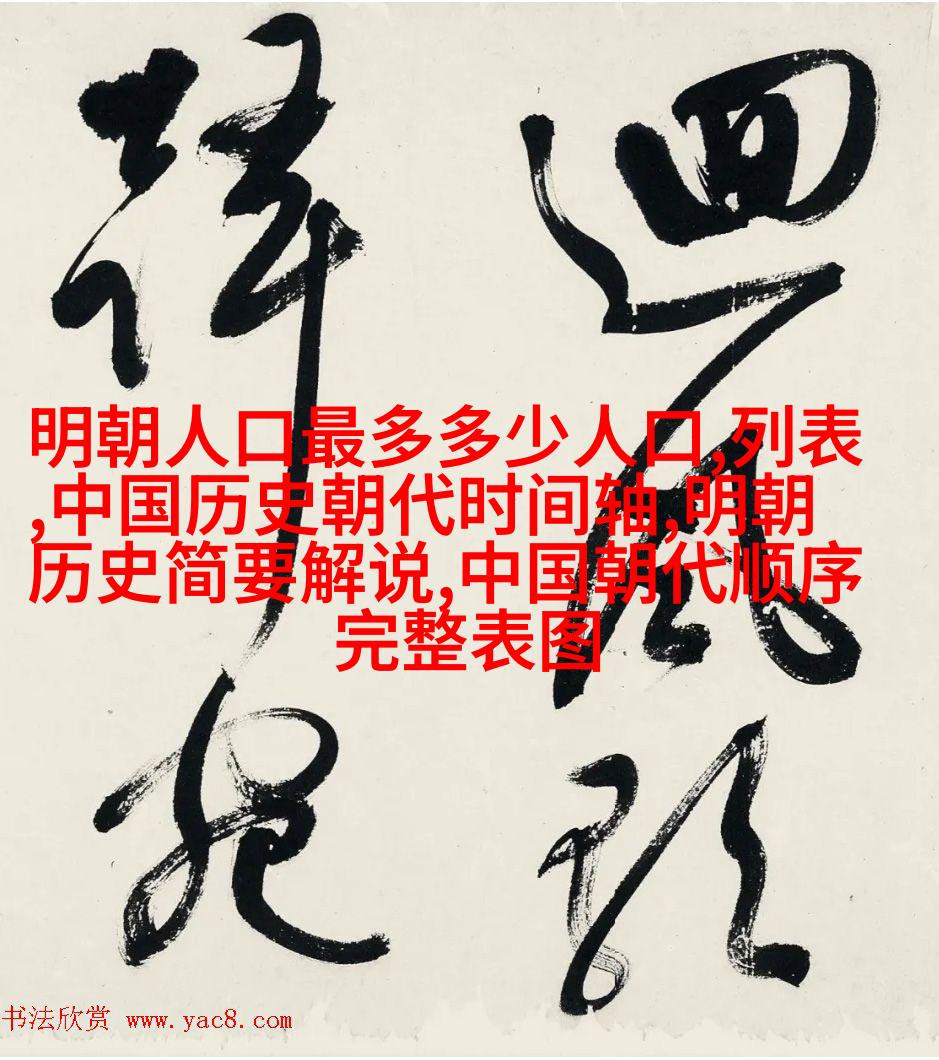 迴風
明朝人口最多多少人口,列表
,中国历史朝代时间轴,明朝
历史简要解说,中国朝代顺序
完整表图
书法欣赏 www.yac8.com